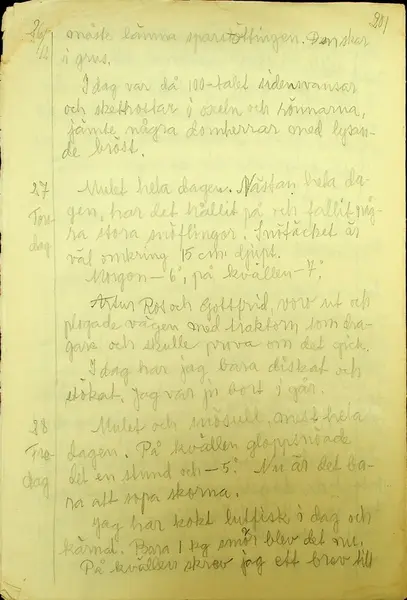 26/12
201
måste lämna sparvöttingen. Den skar
i grus.
I dag var då 100-talet sidensvansar
och skettrostar i oxeln och rönnarna,
jämte några domherrar med lysan-
de bröst.
27
Tors
dag
Mulet hela dagen. Nästan hela da-
gen, har det hållit på och fallit någ-
ra stora snöflingor. Snötäcket är
väl omkring 15 cm djupt.
Morgon – 6°, på kvällen – 7°.
Artur Ros och Gottfrid, voro ut och
plogade vägen med traktorn som dra-
gare och skulle pröva om det gick.
I dag har jag bara diskat och
stökat. Jag var ju bort i går.
28
Fre
dag
Mulet och snösull, mest hela
dagen. På kvällen gloppsnöade
det en stund och – 5°. Nu är det ba-
ra att sopa skorna.
Jag har kokt lutfisk i dag och
kärnd. Bara 1 kg smör blev det nu.
På kvällen skrev jag ett brev till